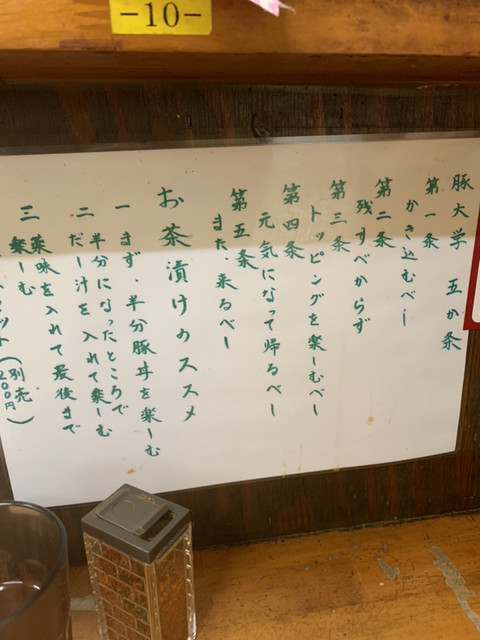 -10-
豚大学 五か条
第一条
かき込むべし
第二条
残すべからず
第三条
トッピングを楽しむべし
第四条
元気になって帰るべし
第五条
また、来るべし
お茶漬けのススメ
一 まず、半分豚丼を楽しむ
二 半分になったところで
だし汁を入れて楽しむ
三 薬味を入れて最後まで
楽しむ
セット(別売
200円)